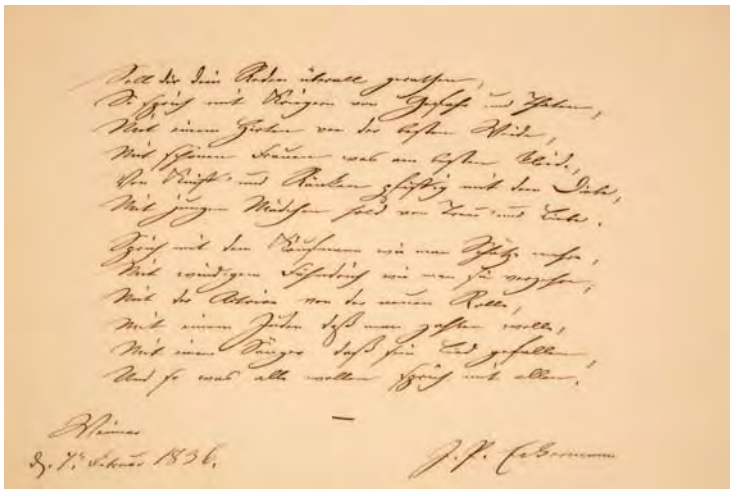 Soll dir dein Reden überall gerathen,
So sprich mit Kriegern von Gefahr und Thaten,
Mit einem Hirten von der besten Weide,
Mit schönen Frauen was am besten kleide,
Von Kniff- und Ränken pfiffig mit dem Diebe,
Mit jungen Mädchen hold von Treu- und Liebe.
Sprich mit dem Kaufmann wie man Schätze mehre,
Mit windigem Fähndrich wie man sie verzehre,
Mit der Actrice von der neuen Rolle,
Mit einem Juden daß man zahlen wolle,
Mit einem Sänger daß sein Lied gefallen,
Und so was alle wollen sprich mit allen.
Weimar
d. 7n Februar 1836.
J. P. Eckermann